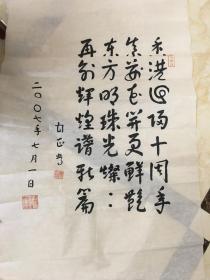 香港回归十周年
紫荆花开更鲜艳
东方明珠光灿:
再创辉煌谱新篇
二〇〇七年七月一日